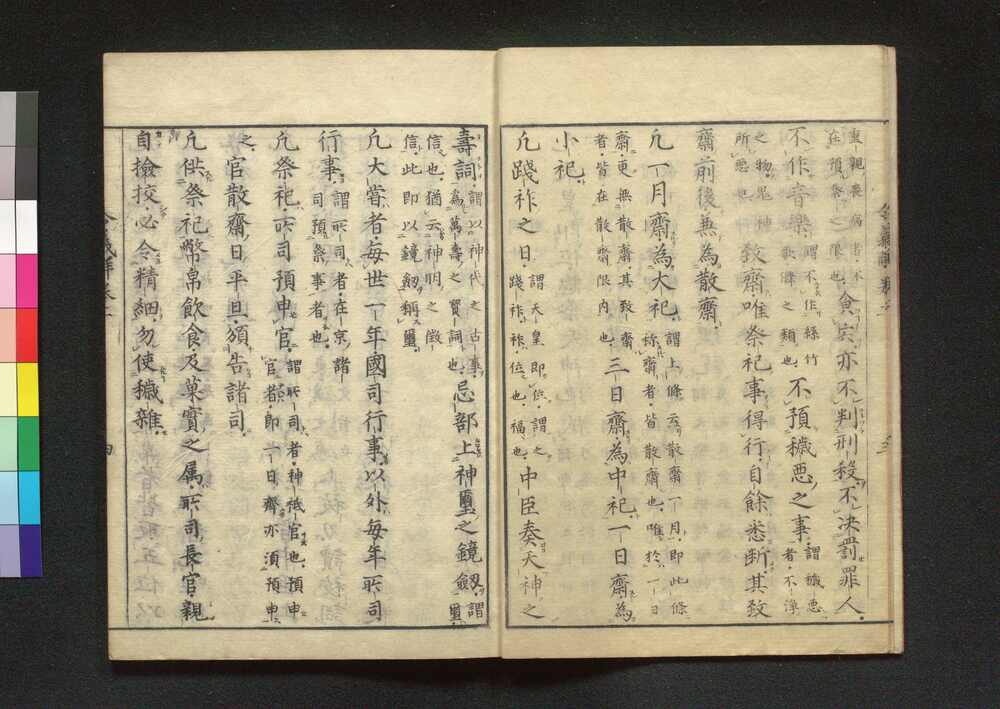 重親喪病者不
在預祭之限也
食宍亦不判刑殺不決罰罪人
不作音樂
謂不作絲竹
歌儛之類也
不預穢惡之事
謂穢惡
者不淨
之物鬼神
所惡也
致齋唯祭祀事得行自餘悉断其致
齋前後兼為散齋
凢一月齋為大祀
謂上條云散齋一月即此條
称齋者皆散齋也唯於一日
齋更無散齋其致齋
者皆在散齋限内也
三日齋為中祀一日齋為
小祀
凢踐祚之日
謂天皇即位謂之
踐祚祚位也福也
中臣奏天神之
壽詞
謂以神代之古事
為萬壽之寳詞也
忌部上神璽之鏡劔
謂
璽
信也猶云神明之徴
信此即以鏡劔稱璽
凢大甞者每世一年國司行事以外每年所司
行事
謂所司者在京諸
司預祭事者也
凢祭祀所司預申官
謂所司者神祇官也預申
官者即一日齋亦須預申
之
官散齋日平旦頒告諸司
凢供祭祀幣帛飲食及菓實之属所司長官親
自撿挍必令精細勿使穢雜